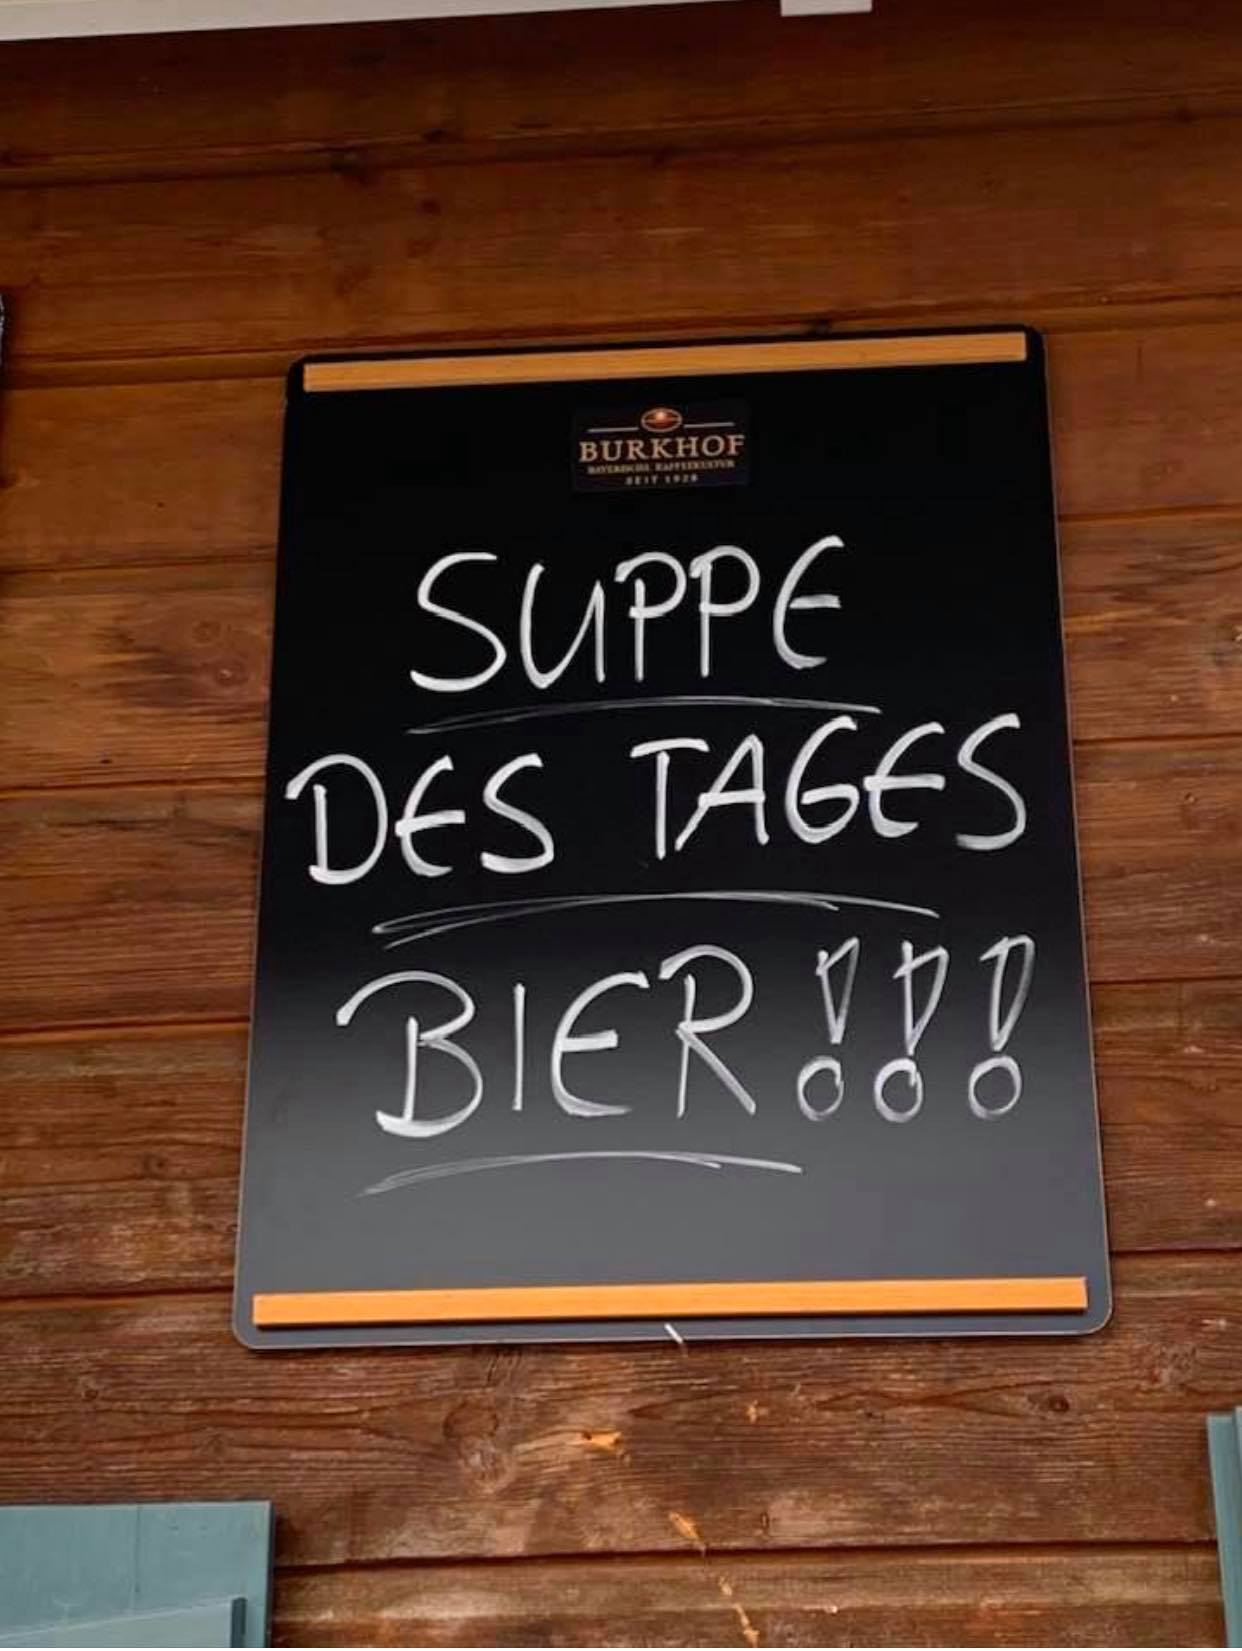 BURKHOF
BAYERISCHE KAFFEEKULTUR
SEIT 1928
SUPPE
DES TAGES
BIER!!!